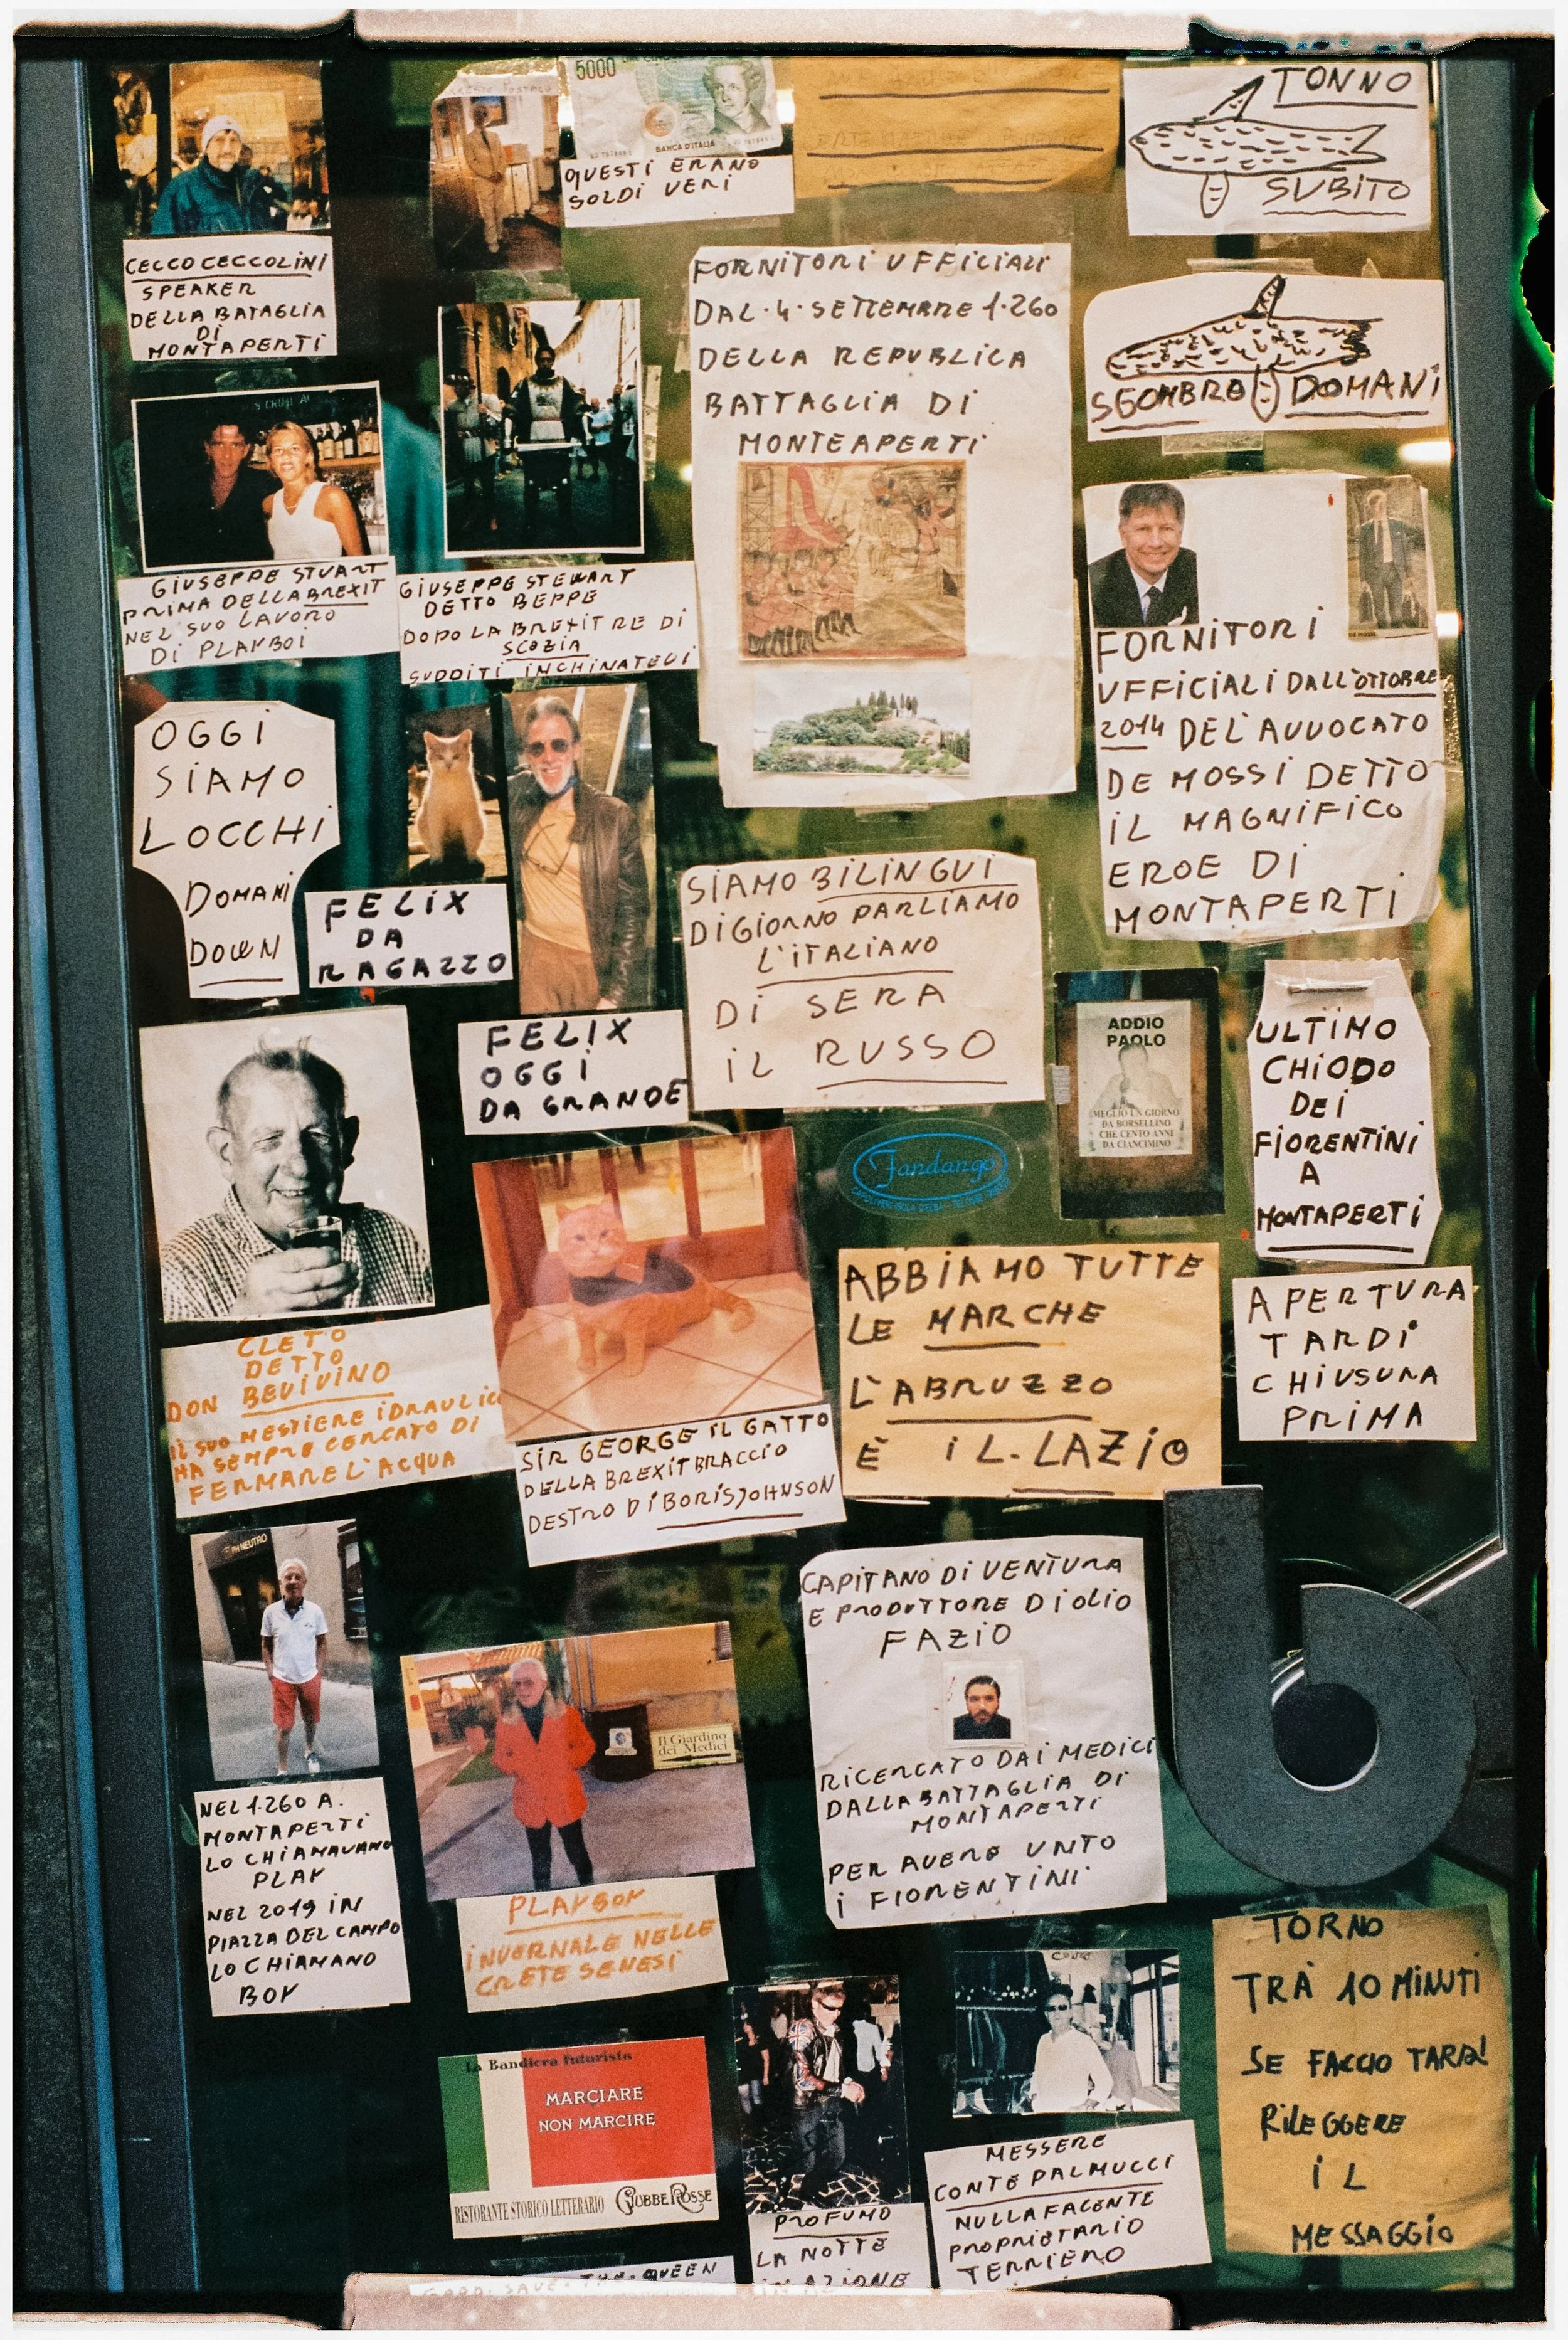 CECCO CECCOLINI
SPEAKER
DELLA BATAGLIA
DI
MONTAPERTI
5000
BANCA D'ITALIA
QUESTI ERANO
SOLDI VERI
TONNO
SUBITO
SGOMBRO DOMANI
FORNITORI UFFICIALI
DAL·4·SETTEMBRE 1·260
DELLA REPUBLICA
BATTAGLIA DI
MONTEAPERTI
GIUSEPPE STUART
PRIMA DELLA BREXIT
NEL SUO LAVORO
DI PLAYBOI
GIUSEPPE STEWART
DETTO BEPPE
DOPO LA BREXIT RE DI
SCOZIA
SUDDITI INCHINATEVI
FORNITORI
UFFICIALI DALL'OTTOBRE
2014 DEL'AVVOCATO
DE MOSSI DETTO
IL MAGNIFICO
EROE DI
MONTAPERTI
OGGI
SIAMO
LOCCHI
DOMANI
DOWN
FELIX
DA
RAGAZZO
FELIX
OGGI
DA GRANDE
SIAMO BILINGUI
DI GIORNO PARLIAMO
L'ITALIANO
DI SERA
IL RUSSO
ADDIO
PAOLO
MEGLIO UN GIORNO
DA BORSELLINO
CHE CENTO ANNI
DA CIANCIMINO
ULTIMO
CHIODO
DEI
FIORENTINI
A
MONTAPERTI
Fandango
CLETO
DETTO
DON BEVIVINO
IL SUO MESTIERE IDRAULICO
HA SEMPRE CERCATO DI
FERMARE L'ACQUA
SIR GEORGE IL GATTO
DELLA BREXIT BRACCIO
DESTRO DI BORIS JOHNSON
ABBIAMO TUTTE
LE MARCHE
L'ABRUZZO
È IL.LAZIO
APERTURA
TARDI
CHIUSURA
PRIMA
PH NEUTRO
NEL 1.260 A.
MONTAPERTI
LO CHIAMAVANO
PLAY
NEL 2019 IN
PIAZZA DEL CAMPO
LO CHIAMANO
BOY
Il Giardino
dei Medici
PLAYBOY
INVERNALE NELLE
CRETE SENESI
CAPITANO DI VENTURA
E PRODUTTORE DI OLIO
FAZIO
RICERCATO DAI MEDICI
DALLA BATTAGLIA DI
MONTAPERTI
PER AVERE UNTO
I FIORENTINI
b
La Bandiera futurista
MARCIARE
NON MARCIRE
RISTORANTE STORICO LETTERARIO GIUBBE ROSSE
GOOD.SAVE.THE.QUEEN
PROFUMO
LA NOTTE
IN AZIONE
MESSERE
CONTE PALMUCCI
NULLAFACENTE
PROPRIETARIO
TERRIERO
TORNO
TRA 10 MINUTI
SE FACCIO TARDI
RILEGGERE
IL
MESSAGGIO